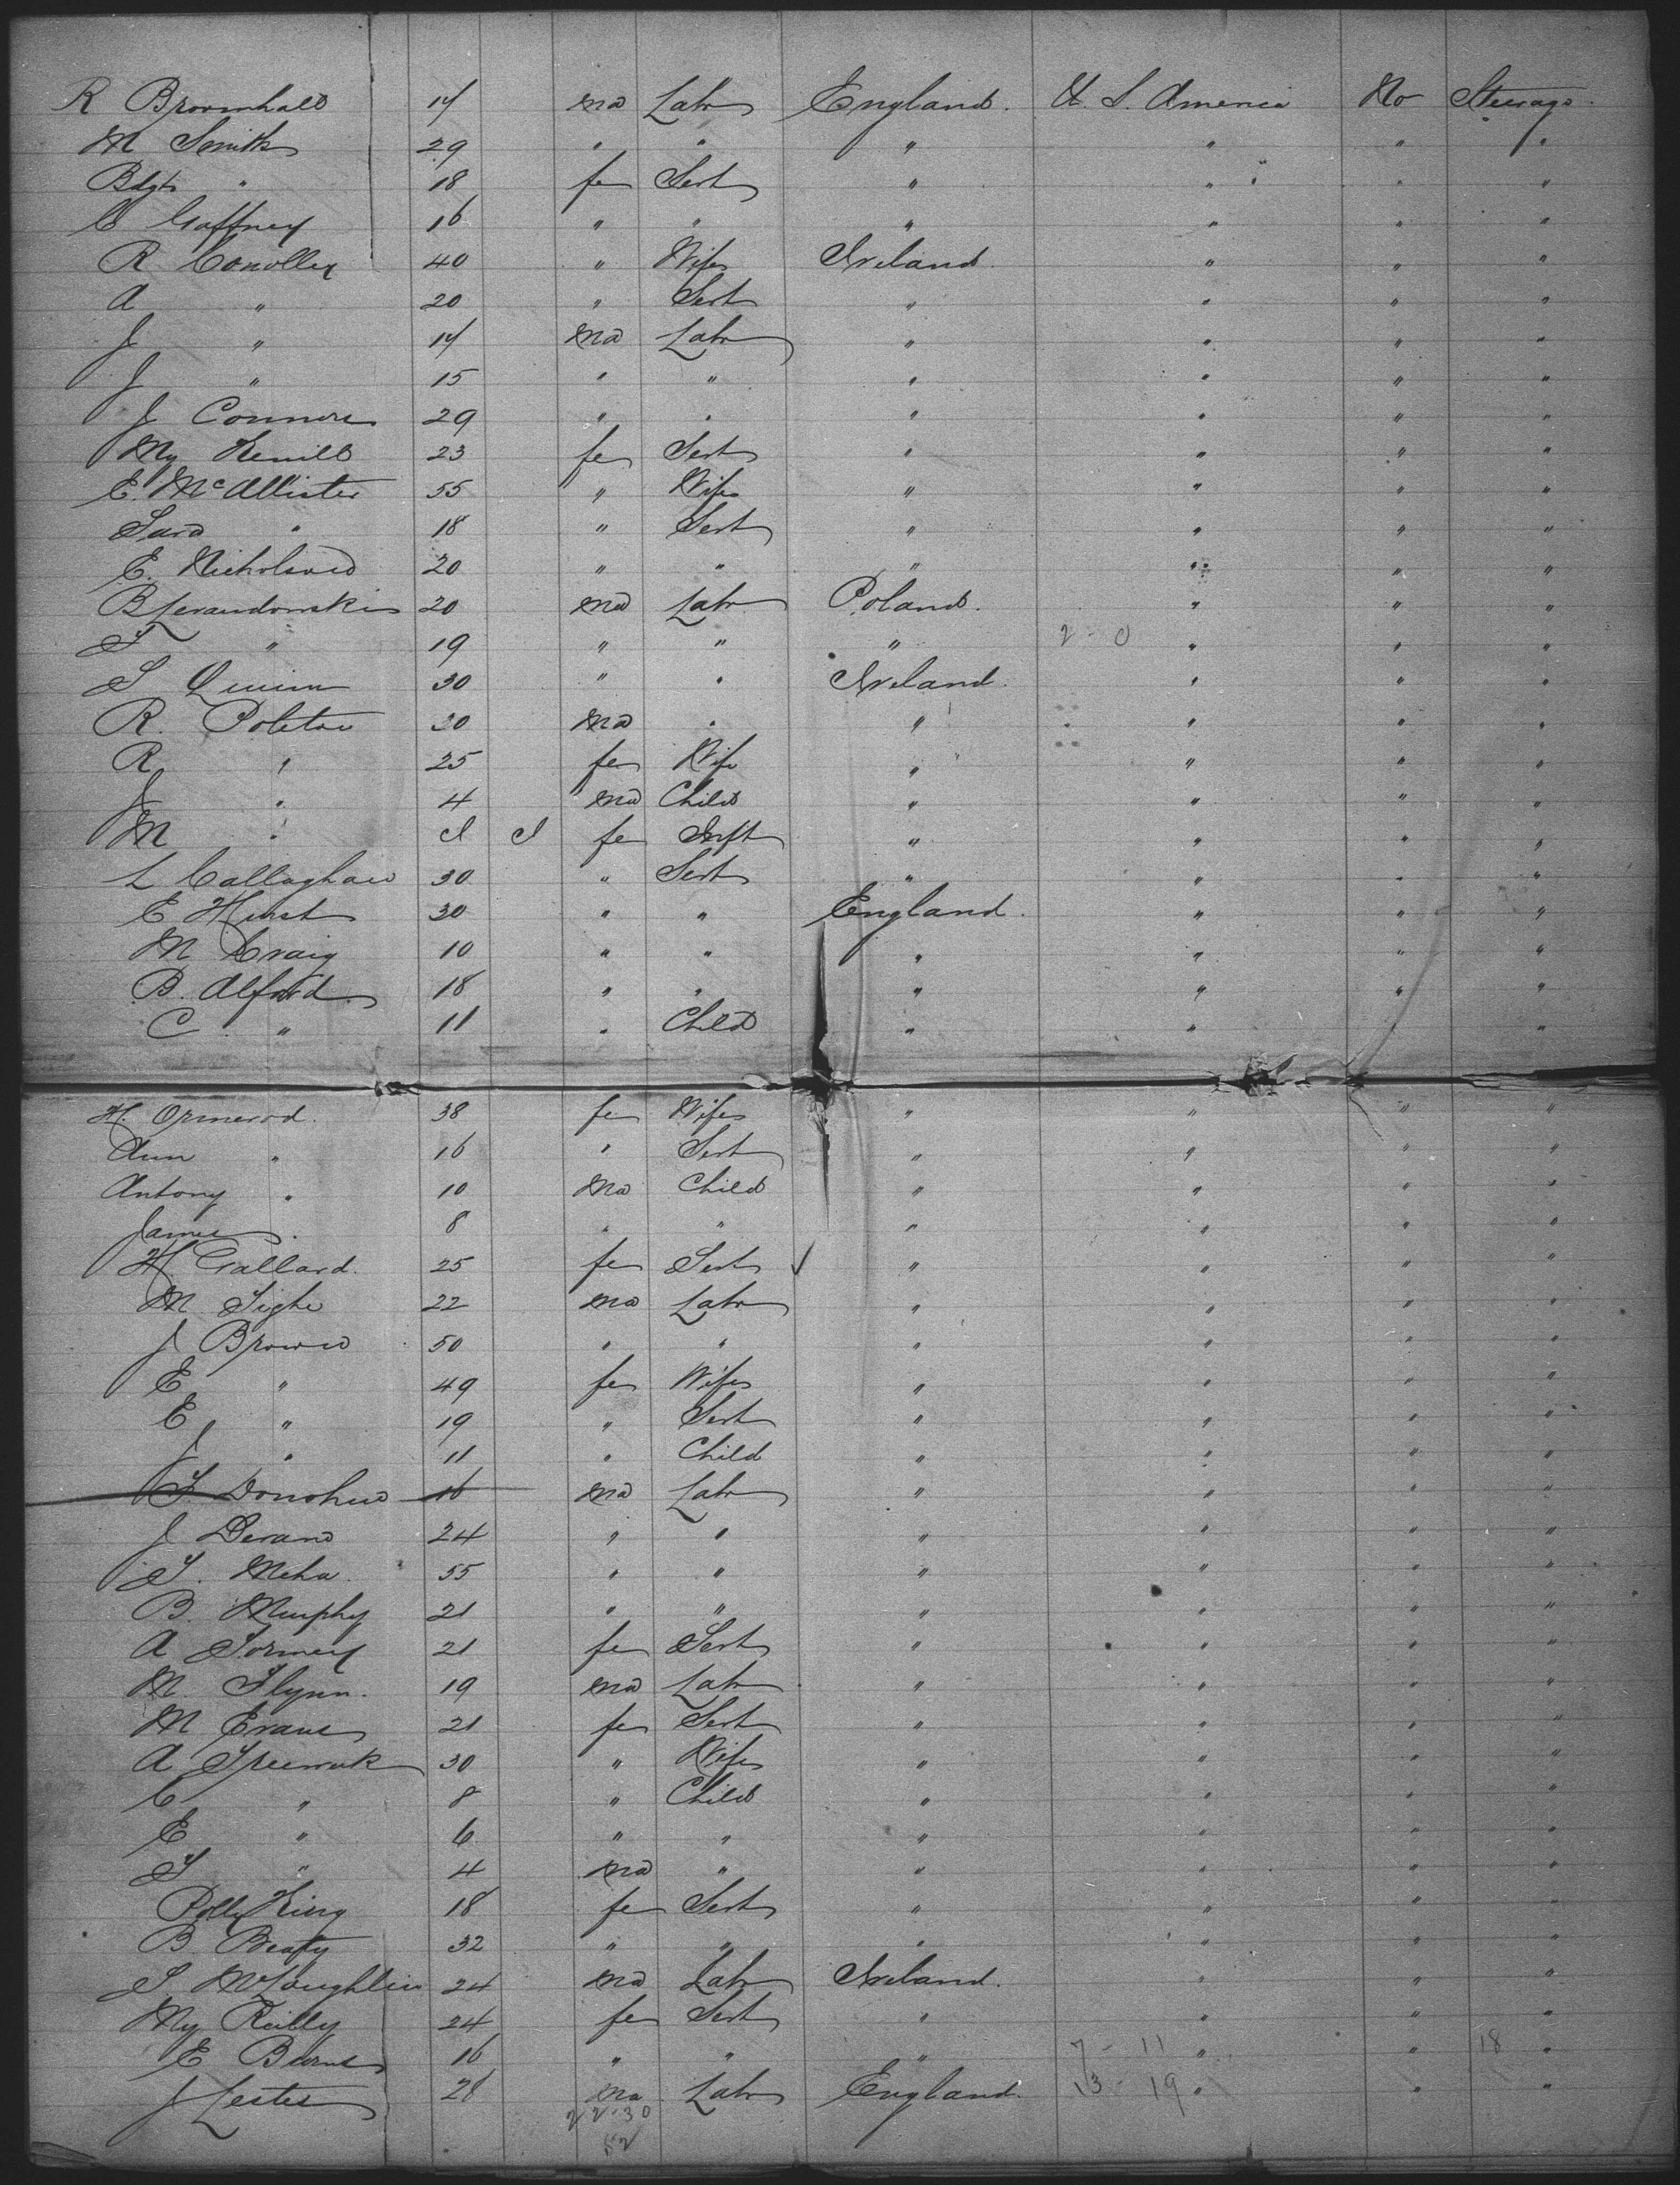 R Broomhall 14 ma Labr England. U. S. America No Steerage.
M Smith 29 " " " " " "
Bdgt " 18 fe Servt " " " "
C Gaffney 16 " " " " " "
R Conolley 40 " Wife Ireland. " " "
A " 20 " Servt " " " "
J " 14 ma Labr " " " "
J " 15 " " " " " "
J Connors 29 " " " " " "
My Kevill 23 fe Servt " " " "
E. McAllister 55 " Wife " " " "
Sara " 18 " Servt " " " "
E. Nicholson 20 " " " " " "
B Lewandowski 20 ma Labr Poland. " " "
" 19 " " " 2 - 0 " " "
S Quinn 30 " " Ireland. " " "
R. 30 ma " " " " "
R " 25 fe Wife " " " "
J " 4 ma Child " " " "
M " fe Inft " " " "
L Callaghan 30 " Servt " " " "
E Hurst 30 " " England. " " "
M Craig 10 " " " " " "
B. Alford 18 " " " " " "
C " 11 " Child " " "
H Ormerod. 38 fe Wife " " " "
Ann " 16 " Servt " " " "
Antony " 10 ma Child " " " "
James " 8 " " " " " "
H Gallard. 25 fe Servt ✓ " " " "
M Tighe 22 ma Labr " " " "
J Brown 50 " " " " " "
E " 49 fe Wife " " " "
E " 19 " Servt " " " "
J " 11 " Child " " " "
T. Donohue 16 ma Labr " " " "
J Devan 24 " " " " " "
T. Meha. 55 " " " " " "
B. Murphy 21 " " " " " "
A Tormey 21 fe Servt " " " "
M. Flynn. 19 ma Labr " " " "
M Evans 21 fe Servt " " " "
A 30 " Wife " " " "
C " 8 " Child " " " "
E " 6 " " " " " "
" 4 ma " " " " "
Polly King 18 fe Servt " " " "
B Beaty 32 " " " " " "
McLaughlin 24 ma Labr Ireland. " " "
My Reilly 24 fe Servt " " " "
E Burns 16 " " " 7 - 11 " " 18 "
J Lester 28 ma Labr England. 13 - 19 " " "
22-30
52